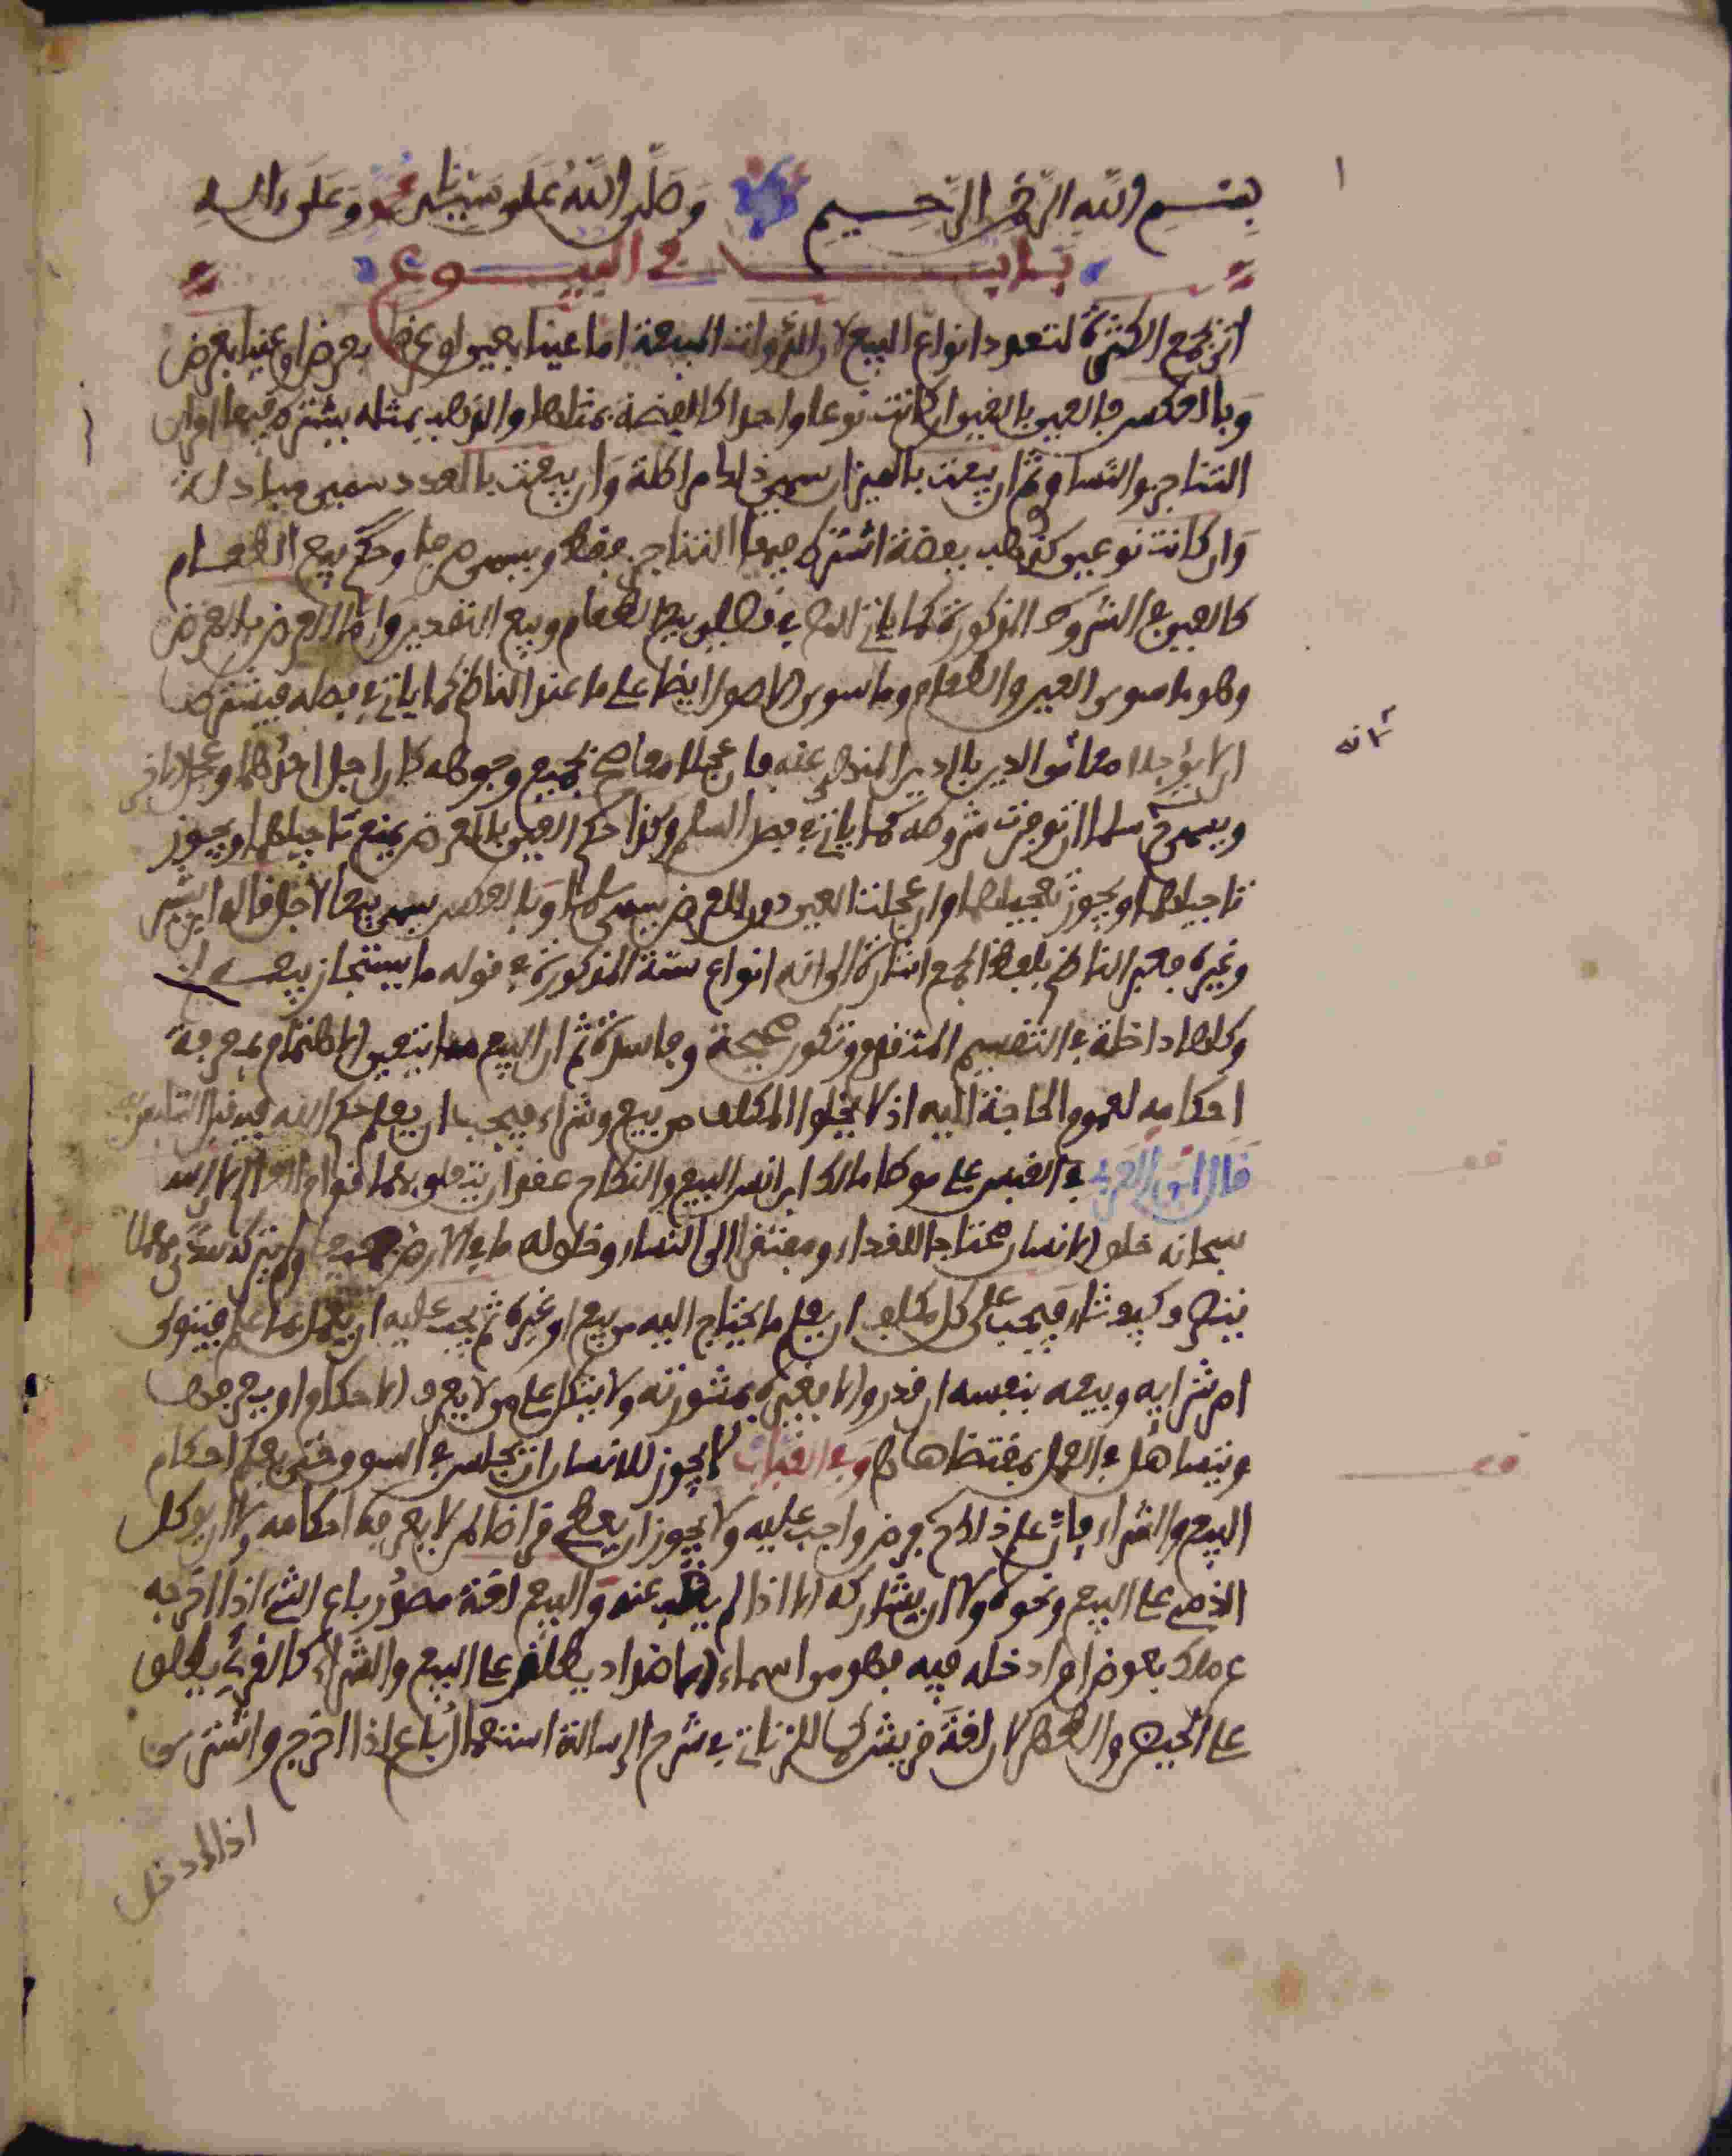 بسم الله الرحمن الرحيم وصلى الله على سيدنا محمد وعلى ءاله
باب في البيوع
اتى بجمع الكثرة لتعدد انواع البيع لان الذوات المبيعة اما عينا بعين او عرضا بعرض او عينا بعرض
وبالعكس فالعين بالعين ان كانت نوعا واحدا كالفضة بمثلها والذهب بمثله يشترط فيهما امران
التناجز والتساوي ثم ان بيعت بالميزان سمي ذالك مراطلة وان بيعت بالعدد سمي مبادلة
وان كانت نوعين كذهب بفضة اشترط فيهما التناجز فقط ويسمى صرفا وحكم بيع الطعام
كالعين في الشروط المذكورة كما ياتي للناظم في فصلي بيع الطعام وبيع النقدين واما العرض بالعرض
وهو ما سوى العين والطعام وما سوى الاصول ايضا على ما عند الناظم كما ياتي في فصله فيشترط
ان لا يؤجلا معا لانه من الدين بالدين المنهي عنه فان عجلا معا صح بجميع وجوهه كان اجل احدهما وعجل الاخر
ويسمى سلما ان توفرت شروطه كما ياتي في فصل السلم وكذا حكم العين بالعرض يمنع تاجيلهما ويجوز
تاجيلهما ويجوز تعجيلهما وان عجلت العين دون العرض يسمى سلما وبالعكس يسمى بيعا لاجل قاله ابن بشير
وغيره فعبر الناظم بلفظ الجمع اشارة الى انه انواع ستة المذكورة في قوله ما يستجاز بيعه الخ
وكلها داخلة في التقسيم المتقدم وتكون صحيحة وفاسدة ثم ان البيع مما يتعين الاهتمام بمعرفة
احكامه لعموم الحاجة اليه اذ لا يخلوا المكلف من بيع وشراء فيجب ان يعلم حكم الله فيه قبل التلبس به
قال ابن العربي في القبس على موطا مالك ابن انس البيع والنكاح عقدان يتعلق بهما قوام العالم لان الله
سبحانه خلق الانسان محتاجا للغذاء ومفتقرا الى النساء وخلق له ما في الارض جميعا ولم يتركه سدى مهملا
يتصرف كيف شاء فيجب على كل مكلف ان يعلم ما يحتاج اليه من بيع او غيره ثم يجب عليه ان يعمل بما علم فيتولى
امر شرايه وبيعه بنفسه ان قدر والا فغيره بمشورته ولا يتكل على من لا يعرف الاحكام او يعرفها
ويتساهل في العمل بمقتضاها وفي القباب لا يجوز للانسان ان يجلس في السوق حتى يعلم احكام
البيع والشراء فان علم ذالك فرض واجب عليه ولا يجوز ان يعطي قراضا لمن لا يعرف احكامه ولا ان يوكل
الذمي على البيع ونحوه ولا ان يشاركه الا اذا لم يغب عنه والبيع لغة مصدر باع الشيء اذا اخرجه
عن ملكه بعوض او ادخله فيه فهو من اسماء الاضداد يطلق على البيع والشراء كالقرء يطلق
على الحيض والطهر لان لغة قريش كما للزناتي في شرح الرسالة استعمال باع اذا اخرج واشترى
اذا ادخل